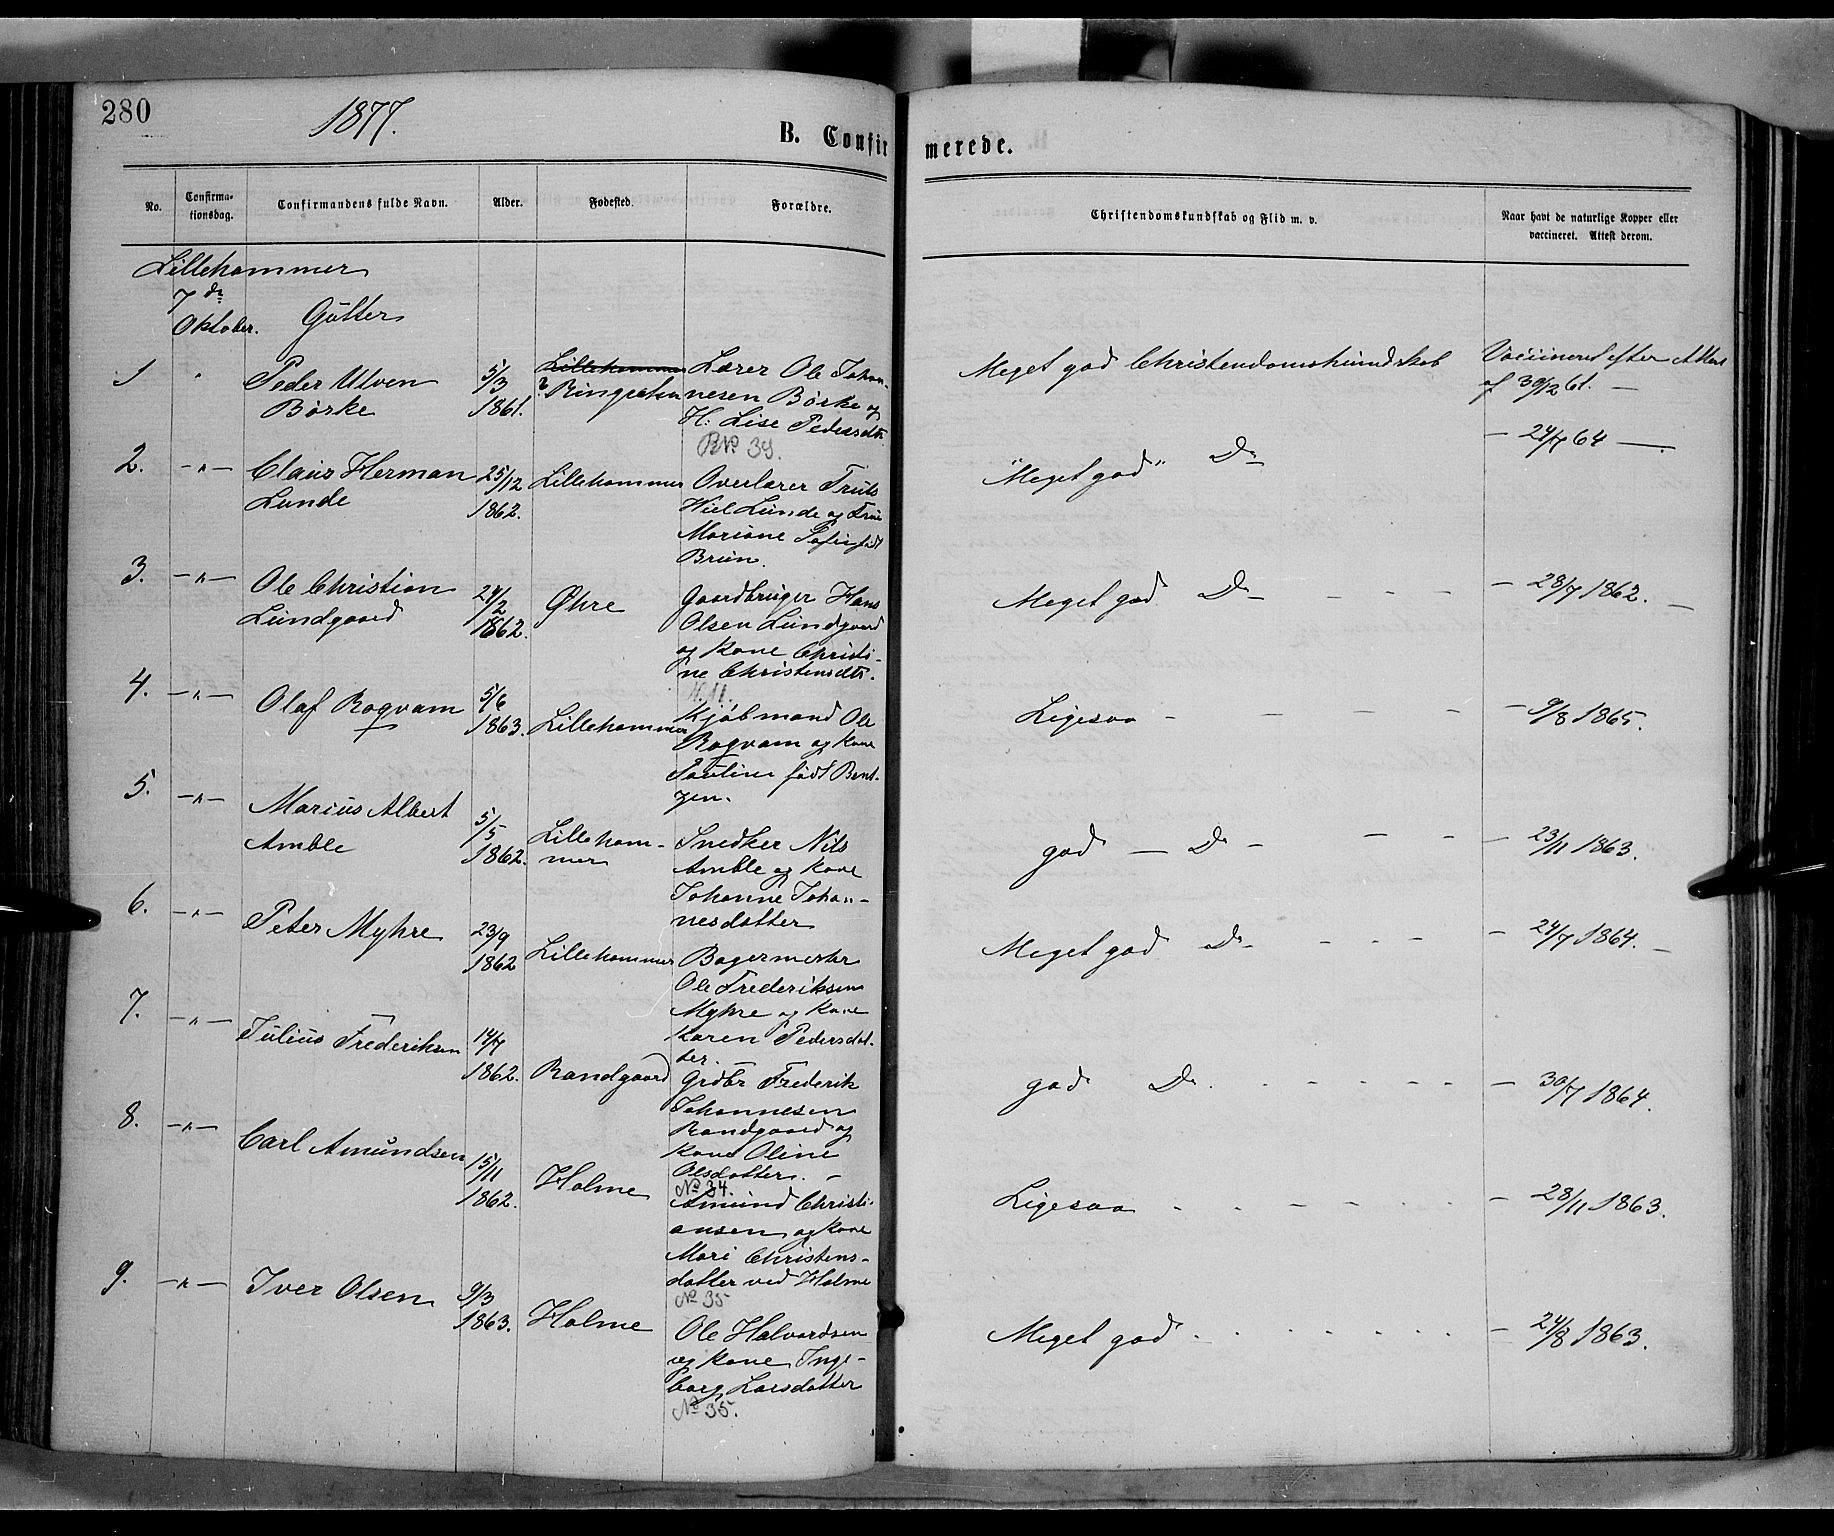 280
1877.
B. Confir
merede.
No.
Confirma-
tionsdag.
Confirmandens fulde Navn.
Alder.
Fødested.
Forældre.
Christendomskundskab og Flid m. v.
Naar havt de naturlige Kopper eller
vaccineret. Attest derom.
Lillehammer
7de
Oktober.
Gutter
1
"
Peder Utven
Børke
5/3
1861.
Lillehammer
? Ringsaker
Lærer Ole Johan-
nesen Børke og
H: Lise Pedersdtr
No 39.
Meget god Christendomskundskab
Vaccineret efter Attest
af 30/12 61. —
2.
—"—
Claus Herman
Lunde
25/12
1862.
Lillehammer
Overlærer Truls
Wiel Lunde og Frue
Mariane født
Bruun.
"Meget god" Do
— 24/7 64 —
3.
—"—
Ole Christian
Lundgaard
24/2
1862.
Øhre
Gaardbruger Hans
Olsen Lundgaard
og Kone Christi-
ne Christensdtr.
N. 11.
Meget god Do - - - -
— 28/7 1862. —
4.
—"—
Olaf Rogvam
5/6
1863.
Lillehammer
Kjøbmand Ole
Rogvam og Kone
Pauline født Bent-
zen.
Ligesaa - - - - -
— 9/8 1865.
5.
—"—
Marius Albert
Amble
5/5
1862.
Lilleham-
mer
Snedker Nils
Amble og Kone
Johanne Johan-
nesdatter
god — Do - - -
— 23/11 1863.
6.
—"—
Peter Myhre
23/9
1862
Lillehammer
Bagermester
Ole Frederiksen
Myhre og Kone
Karen Pedersdat-
ter.
Meget god Do - - -
— 24/7 1864. —
7.
—"—
Julius Frederiksen
14/7
1862.
Randgaard
Grdbr Frederik
Johannesen
Randgaard og
Kone Oline
Olsdatter. -
No 34.
god Do. - - - - -
— 30/7 1864.
8.
—"—
Carl Amundsen
15/11
1862.
Holme
Amund Christi-
ansen og Kone
Mari Christens-
datter ved Holme
No 35
Ligesaa - - - - - -
— 28/11 1863.
9.
—"—
Iver Olsen
9/3
1863.
Holme
Ole Halvardsen
og Kone Inge-
borg Larsdatter
No 35.
Meget god - - - - - - -
— 24/8 1863.